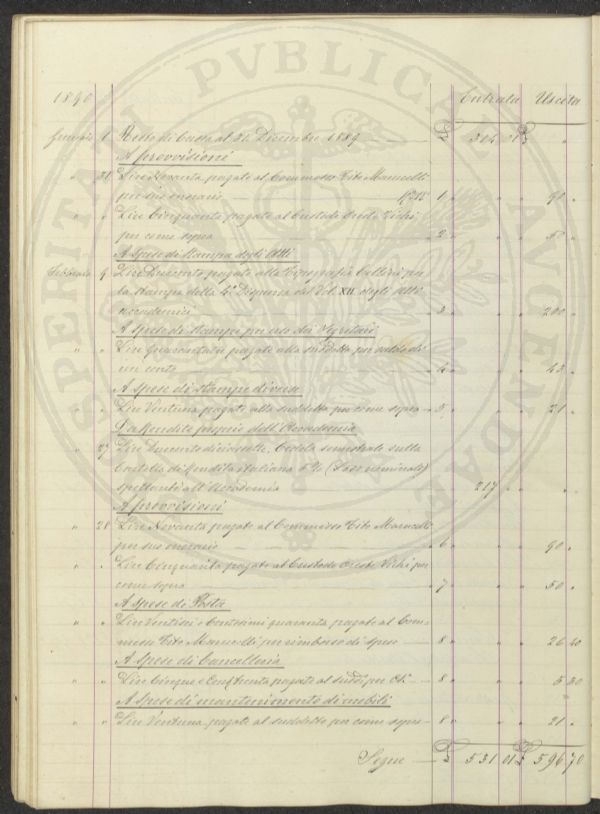 1890 Entrata Uscita
Gennaio 1 Resto di Cassa al 31 Decembre 1889 £ 314 01 £ "
A provvisioni
" 31 Lire Novanta, pagate al Commesso Tito Marucelli
per suo onorario 1 " 90 "
" " Lire Cinquanta pagate al Custode Oreste Vichi,
per come sopra 2 " 50 "
A Spese di Stampa degli Atti
Febbraio 4 Lire Duecento pagate alla Tipografia Cellini per
la stampa della 4ª Dispensa del Vol. XII degli Atti
Accademia 3 " 200 "
A Spese di Stampe per uso dei Segretari
" " Lire Quarantatre pagate alla suddetta per saldo di
un conto 4 " 43 "
A Spese di Stampe diverse
" " Lire Ventuna, pagate alla suddetta per come sopra 5 " 21 "
Da Rendite proprie dell'Accademia
" 27 Lire Duecento diciassette, Cedola semestrale sulla
Cartella di Rendita italiana 5 % (5000 nominale)
spettante all'Accademia 217 " " "
A provvisioni
" 28 Lire Novanta pagate al Commesso Tito Marucelli
per suo onorario 6 " 90 "
" " Lire Cinquanta pagate al Custode Oreste Vichi per
come sopra 7 " 50 "
A Spese di Posta
" " Lire Ventisei e Centesimi quaranta, pagate al Com-
messo Tito Marucelli per rimborso di spese 8 " 26 40
A Spese di Cancelleria
" " Lire Cinque e Cent. trenta pagate al sudd. per Cª 8 " 5 30
A Spese di mantenimento di mobili
" " Lire Ventuna, pagate al suddetto per come sopra 8 " 21 "
Segue £ 531 01 £ 596 70
PVBLICAE
AVGENDAE